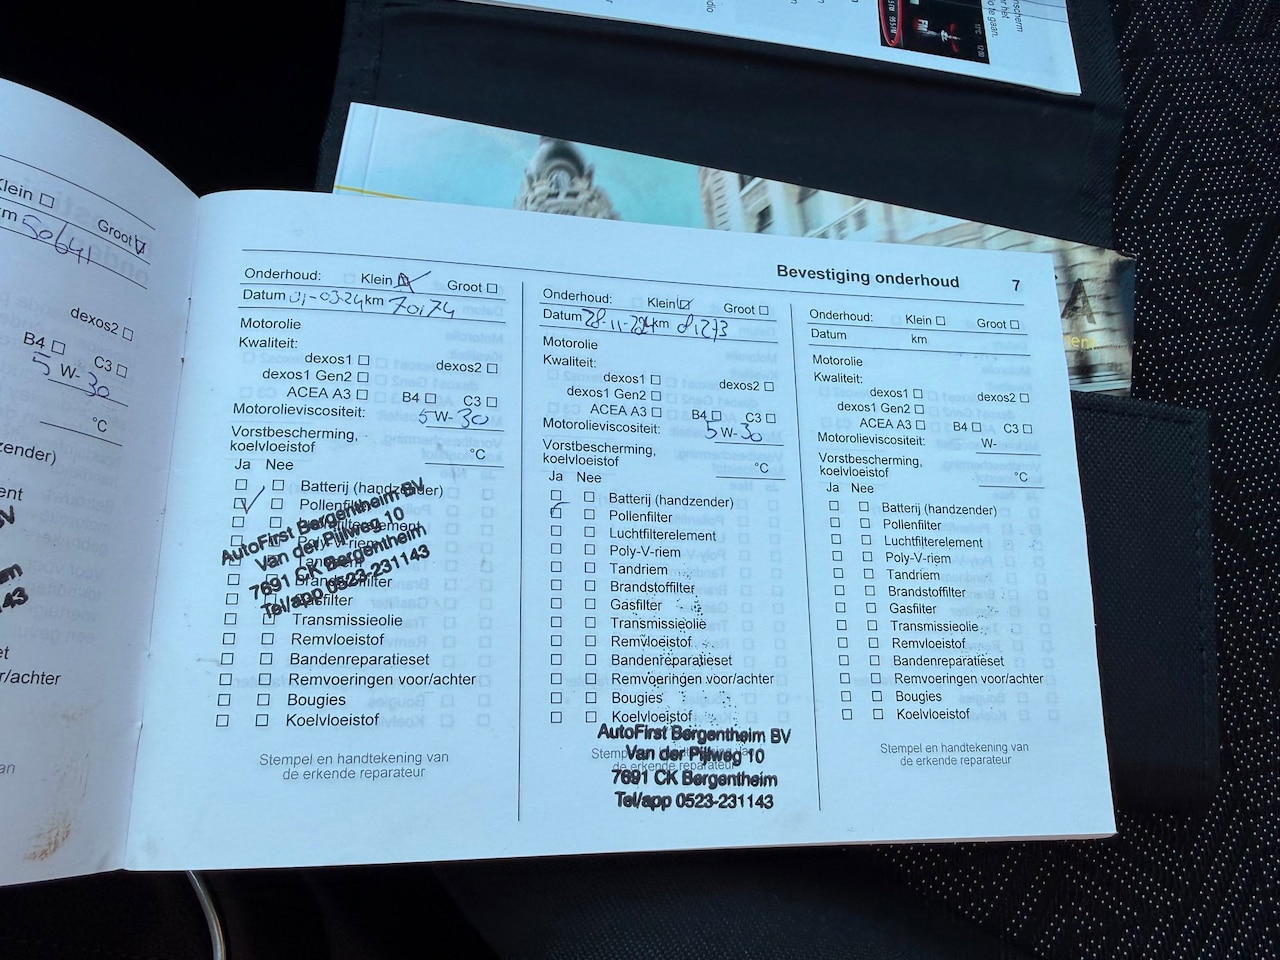 nscherm
er het
o te gaan.
dio
12:00
Klein ☐
Groot ☑
km 50641
dexos2 ☐
B4 ☐ C3 ☐
5 W- 30
°C
Bevestiging onderhoud 7
Onderhoud: Klein ☑ Groot ☐
Datum 01-03-24 km 70174
Motorolie
Kwaliteit:
dexos1 ☐ dexos2 ☐
dexos1 Gen2 ☐
ACEA A3 ☐ B4 ☐ C3 ☐
Motorolieviscositeit: 5 W- 30
Vorstbescherming,
koelvloeistof °C
Ja Nee
☐ ☐ Batterij (handzender)
☑ ☐ Pollenfilter
☐ ☐ Luchtfilterelement
☐ ☐ Poly-V-riem
☐ ☐ Tandriem
☐ ☐ Brandstoffilter
☐ ☐ Gasfilter
☐ ☐ Transmissieolie
☐ ☐ Remvloeistof
☐ ☐ Bandenreparatieset
☐ ☐ Remvoeringen voor/achter
☐ ☐ Bougies
☐ ☐ Koelvloeistof
AutoFirst Bergentheim BV
Van der Pijlweg 10
7691 CK Bergentheim
Tel/app 0523-231143
Stempel en handtekening van
de erkende reparateur
Onderhoud: Klein ☑ Groot ☐
Datum 28-11-24 km 81273
Motorolie
Kwaliteit:
dexos1 ☐ dexos2 ☐
dexos1 Gen2 ☐
ACEA A3 ☐ B4 ☐ C3 ☐
Motorolieviscositeit: 5 W- 30
Vorstbescherming,
koelvloeistof °C
Ja Nee
☐ ☐ Batterij (handzender)
☐ ☐ Pollenfilter
☐ ☐ Luchtfilterelement
☐ ☐ Poly-V-riem
☐ ☐ Tandriem
☐ ☐ Brandstoffilter
☐ ☐ Gasfilter
☐ ☐ Transmissieolie
☐ ☐ Remvloeistof
☐ ☐ Bandenreparatieset
☐ ☐ Remvoeringen voor/achter
☐ ☐ Bougies
☐ ☐ Koelvloeistof
AutoFirst Bergentheim BV
Van der Pijlweg 10
7691 CK Bergentheim
Tel/app 0523-231143
Stempel en handtekening van
de erkende reparateur
Onderhoud: Klein ☐ Groot ☐
Datum km
Motorolie
Kwaliteit:
dexos1 ☐ dexos2 ☐
dexos1 Gen2 ☐
ACEA A3 ☐ B4 ☐ C3 ☐
Motorolieviscositeit: W-
Vorstbescherming,
koelvloeistof °C
Ja Nee
☐ ☐ Batterij (handzender)
☐ ☐ Pollenfilter
☐ ☐ Luchtfilterelement
☐ ☐ Poly-V-riem
☐ ☐ Tandriem
☐ ☐ Brandstoffilter
☐ ☐ Gasfilter
☐ ☐ Transmissieolie
☐ ☐ Remvloeistof
☐ ☐ Bandenreparatieset
☐ ☐ Remvoeringen voor/achter
☐ ☐ Bougies
☐ ☐ Koelvloeistof
Stempel en handtekening van
de erkende reparateur